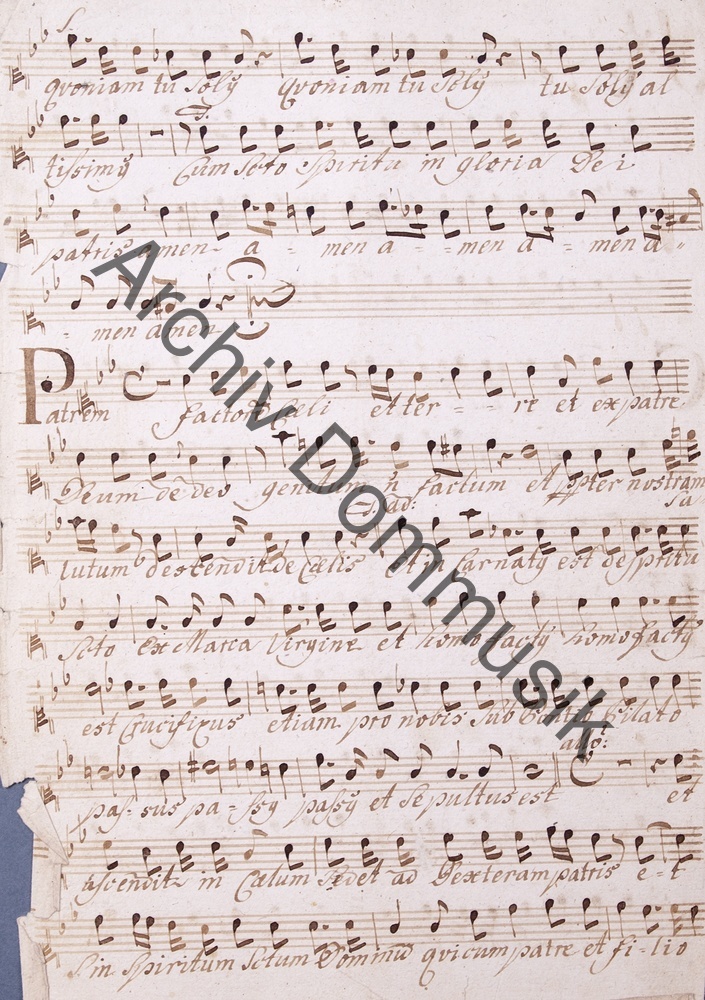 Qvoniam tu Solŷ Qvoniam tu Solŷ tu Solŷ al
tissimŷ Cum Scto Spiritu in gloria De i
patris amen a = men a = men a = men a =
= men amen
Patrem factorē Cœli et ter = = re et ex patre
Deum de deo genitum n factum et ppter nostram
ad: Sa
lutum descendit de Cœlis et in Carnatŷ est de Spritu
Scto ex Maria Virgine et homo factŷ homo factŷ
est Crucifixus etiam pro nobis Sub Pilato
allo:
pas- sus pa- ssŷ passŷ et Sepultus est et
ascendit in Cœlum Sedet ad Dexteram patris e = t
in Spiritum Sctum Dominū qvi cum patre et fi- lio
Archiv Dommusik